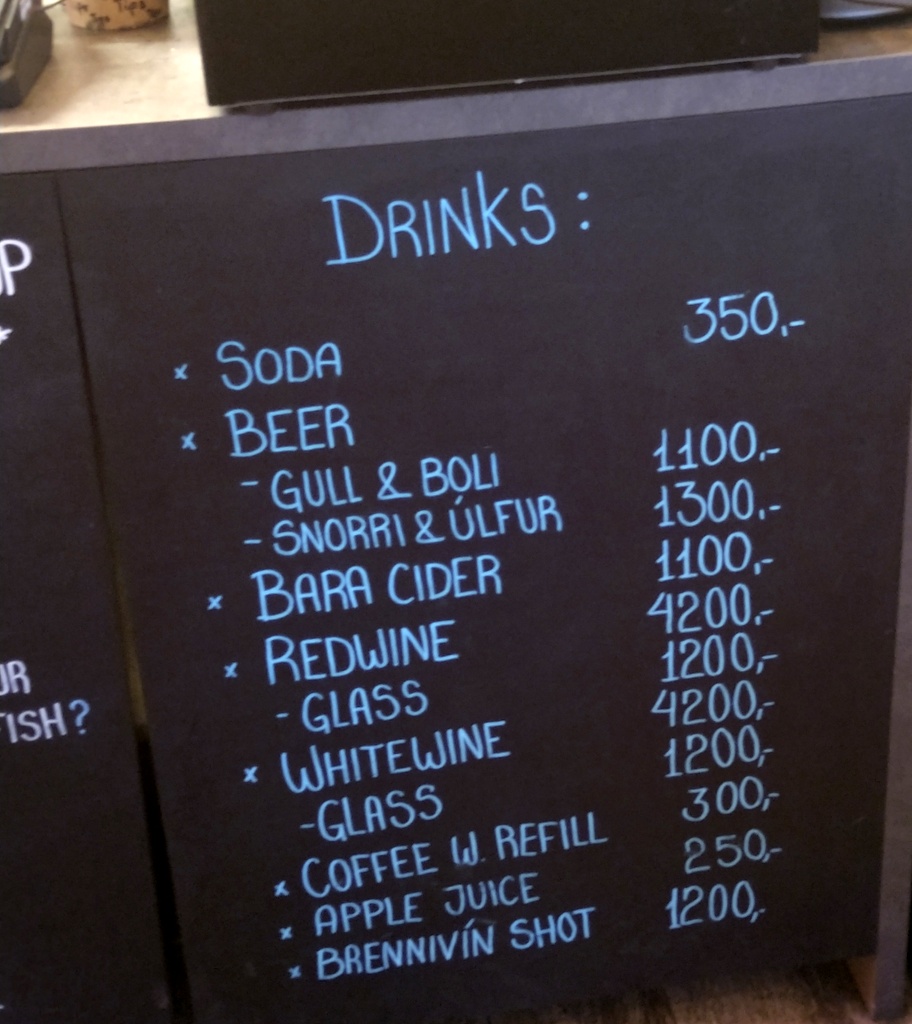 Tips
DRINKS:
x SODA 350,-
x BEER
- GULL & BOLI 1100,-
- SNORRI & ÚLFUR 1300,-
x BARA CIDER 1100,-
x REDWINE 4200,-
- GLASS 1200,-
x WHITEWINE 4200,-
-GLASS 1200,-
x COFFEE W. REFILL 300,-
x APPLE JUICE 250,-
x BRENNIVÍN SHOT 1200,-